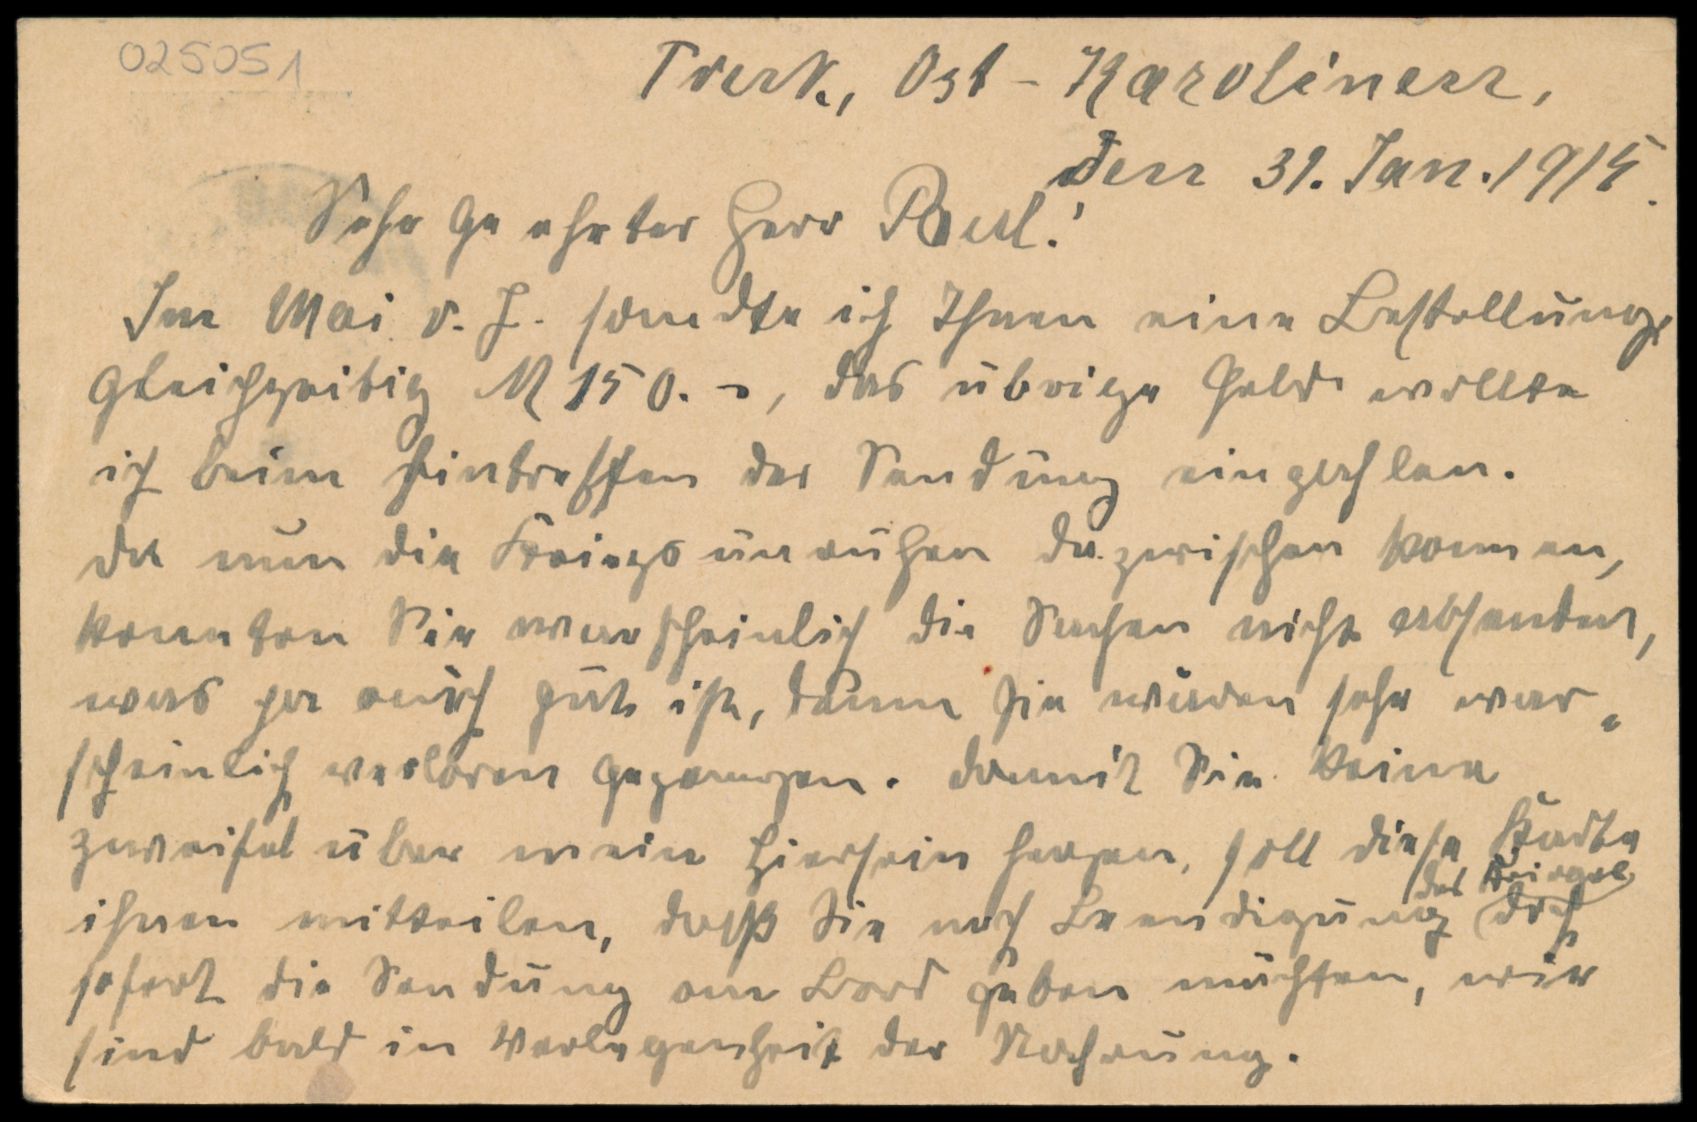 025051
Truk, Ost-Karolinen,
den 31. Jan. 1915.
Sehr geehrter Herr Paul!
Im Mai v. J. sandte ich Ihnen eine Bestellung,
gleichzeitig M 150.-, das übrige Geld wollte
ich beim Eintreffen der Sendung einzahlen.
Da nun die Kriegsunruhen dazwischen kommen,
konnten Sie warscheinlich die Sachen nicht absenden,
was ja auch gut ist, denn Sie wären sehr war-
scheinlich verloren gegangen. Damit Sie keine
zweifel über mein Hiersein hegen, soll diese Karte
ihnen mitteilen, daß Sie nach Beendigung des Krieges doch
sofort die Sendung an Bord geben möchten, wir
sind bald in Verlegenheit der Nahrung.